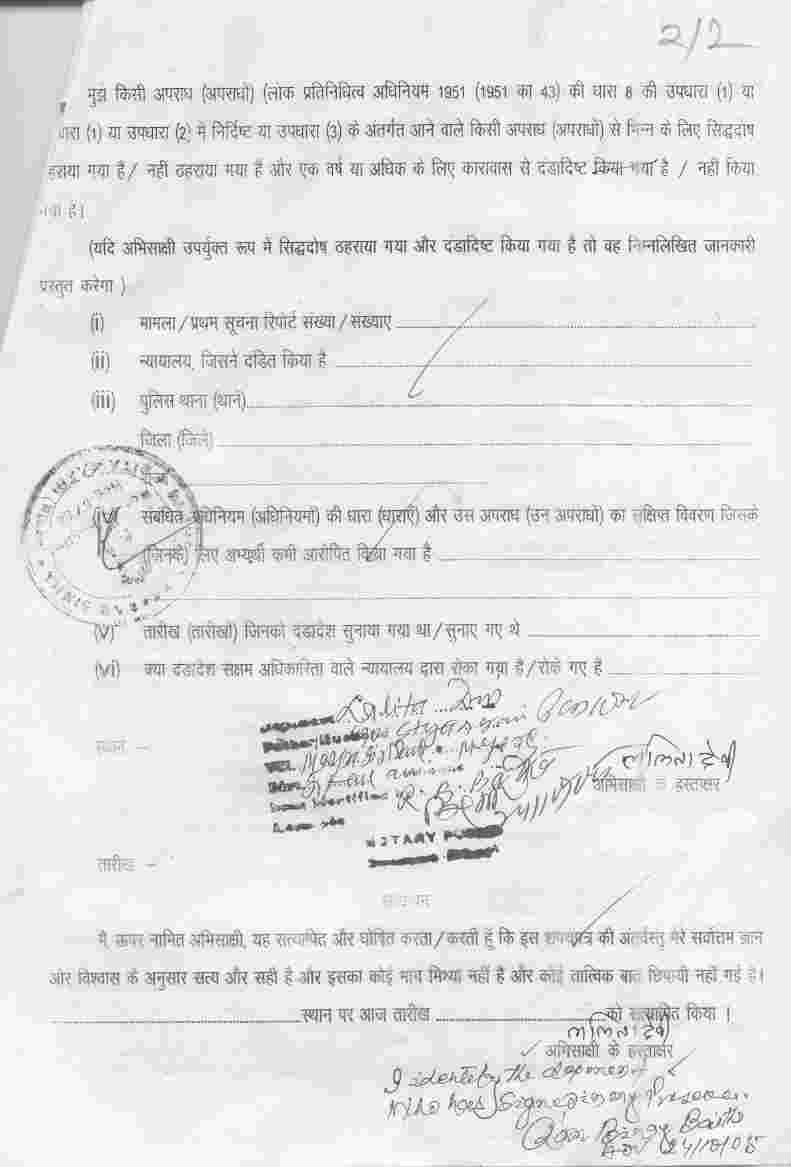 2/2
मुझे किसी अपराध (अपराधों) (लोक प्रतिनिधित्व अधिनियम 1951 (1951 का 43) की धारा 8 की उपधारा (1) या
धारा (1) या उपधारा (2) में निर्दिष्ट या उपधारा (3) के अंतर्गत आने वाले किसी अपराध (अपराधों) से भिन्न के लिए सिद्धदोष
ठहराया गया है / नहीं ठहराया गया है और एक वर्ष या अधिक के लिए कारावास से दंडादिष्ट किया गया है / नहीं किया
गया है।
(यदि अभिसाक्षी उपर्युक्त रूप में सिद्धदोष ठहराया गया और दंडादिष्ट किया गया है तो वह निम्नलिखित जानकारी
प्रस्तुत करेगा )
(i) मामला / प्रथम सूचना रिपोर्ट संख्या / संख्याएं
(ii) न्यायालय, जिसने दंडित किया है
(iii) पुलिस थाना (थाने)
जिला (जिले)
(iv) संबंधित अधिनियम (अधिनियमों) की धारा (धाराएँ) और उस अपराध (उन अपराधों) का संक्षिप्त विवरण जिसके
(जिनके) लिए अभ्यर्थी कभी आरोपित किया गया है
(v) तारीख (तारीखों) जिनको दंडादेश सुनाया गया था / सुनाए गए थे
(vi) क्या दंडादेश सक्षम अधिकारिता वाले न्यायालय द्वारा रोका गया है / रोके गए है
Lalita Devi
स्थान –
ललिता देवी
अभिसाक्षी के हस्ताक्षर
NOTARY
तारीख –
सत्यापन
मैं, ऊपर नामित अभिसाक्षी, यह सत्यापित और घोषित करता / करती हूँ कि इस शपथपत्र की अंतर्वस्तु मेरे सर्वोत्तम ज्ञान
और विश्वास के अनुसार सत्य और सही है और इसका कोई भाग मिथ्या नहीं है और कोई तात्विक बात छिपायी नहीं गई है।
स्थान पर आज तारीख को सत्यापित किया ।
ललिता देवी
अभिसाक्षी के हस्ताक्षर
I identify the deponent
who has Signed in my Presence.